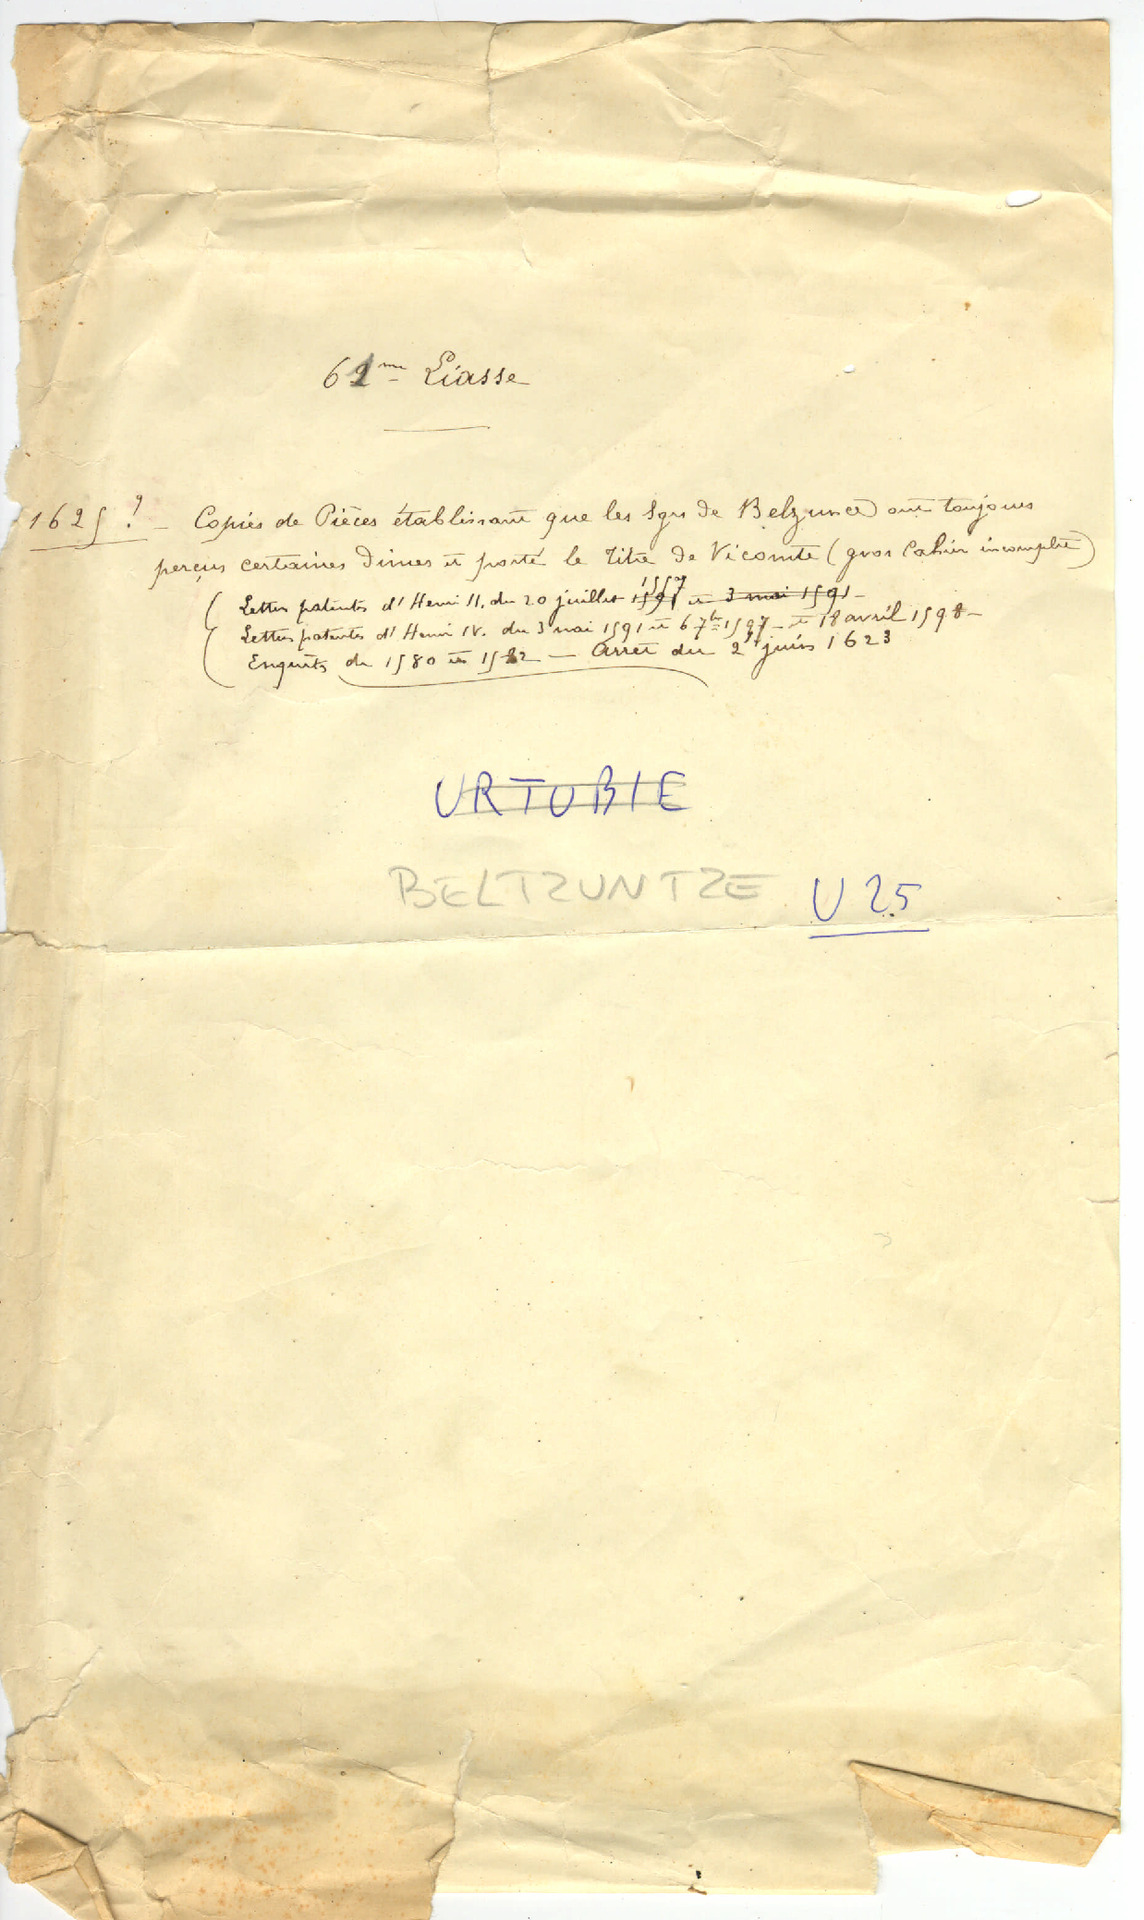 62me Liasse
1625 ? - Copies de Pièces établissant que les Sgrs de Belzunce ont toujours
perçus certaines Dimes et porté le titre de Vicomte (gros Cahier incomplet)
Lettres patentes d'Henri II. du 20 juillet 1557 et 3 mai 1591 -
Lettres patentes d'Henri IV. du 3 mai 1591 et 6 7bre 1597 - et 18 avril 1598 -
Enquêts de 1580 et 1582 - Arrêt du 2 juin 1623
URTUBIE
BELTZUNTZE U25